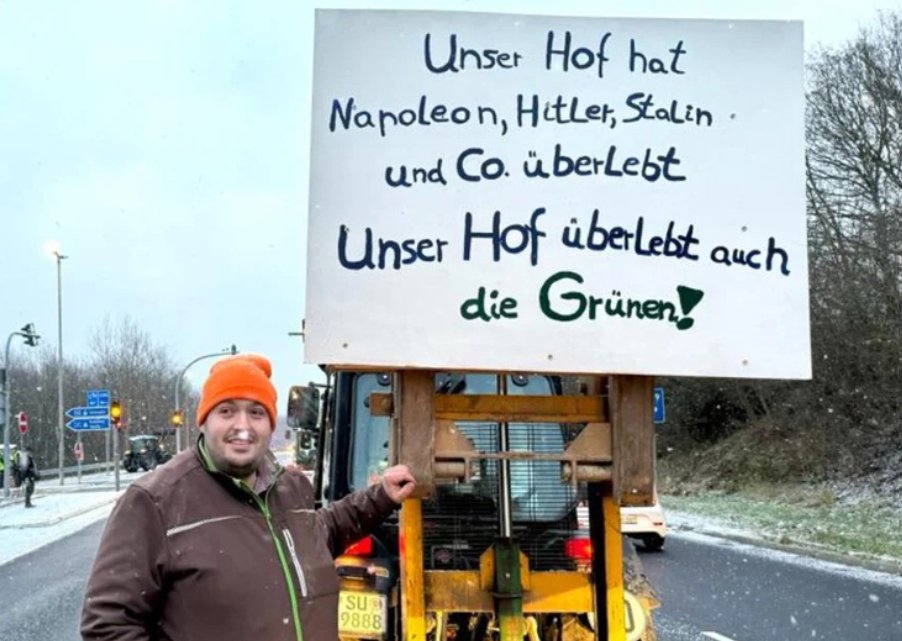 Unser Hof hat
Napoleon, Hitler, Stalin
und Co. überlebt
Unser Hof überlebt auch
die Grünen!
SU
9888